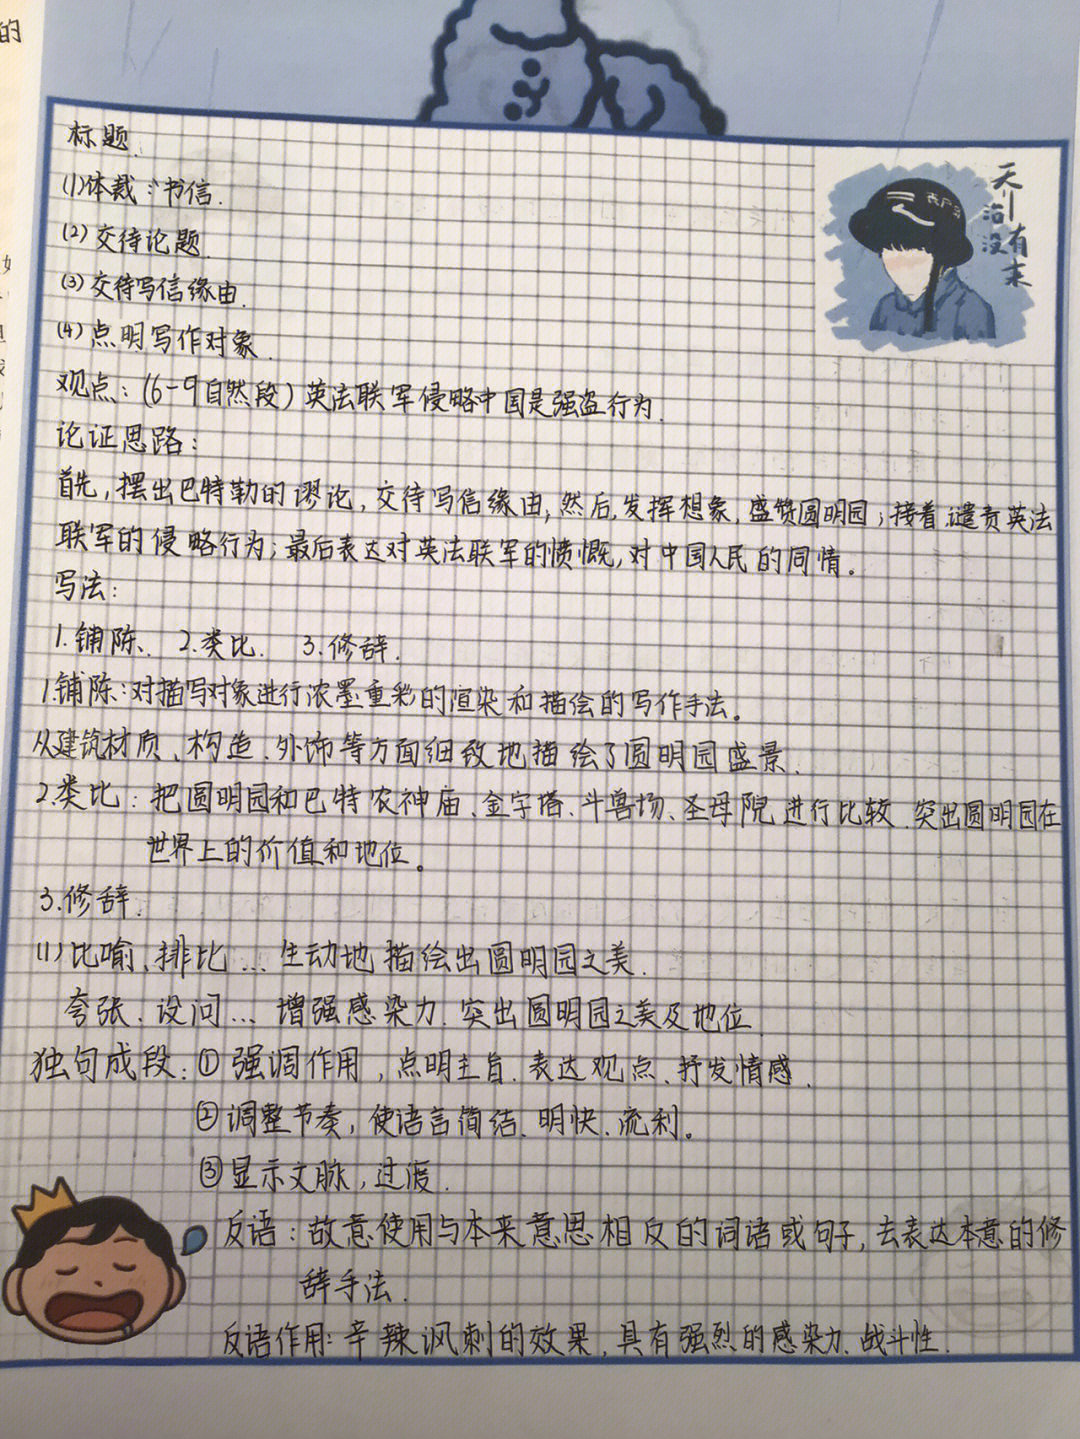 的
标题.
(1)体裁:书信.
(2)交待论题.
(3)交待写信缘由.
(4)点明写作对象.
观点:(6-9自然段)英法联军侵略中国是强盗行为.
论证思路:
首先,摆出巴特勒的谬论,交待写信缘由,然后,发挥想象,盛赞圆明园;接着,谴责英法
联军的侵略行为;最后表达对英法联军的愤慨,对中国人民的同情。
写法:
1.铺陈、 2.类比. 3.修辞.
1.铺陈:对描写对象进行浓墨重彩的渲染和描绘的写作手法。
从建筑材质、构造、外饰等方面细致地描绘了圆明园盛景.
2.类比:把圆明园和巴特农神庙、金字塔、斗兽场、圣母院进行比较.突出圆明园在
世界上的价值和地位。
3.修辞.
(1)比喻、排比... 生动地描绘出圆明园之美.
夸张、设问... 增强感染力.突出圆明园之美及地位.
独句成段:①强调作用,点明主旨.表达观点、抒发情感.
②调整节奏,使语言简结、明快、流利。
③显示文脉,过渡.
反语:故意使用与本来意思相反的词语或句子,去表达本意的修
辞手法.
反语作用:辛辣讽刺的效果,具有强烈的感染力、战斗性.